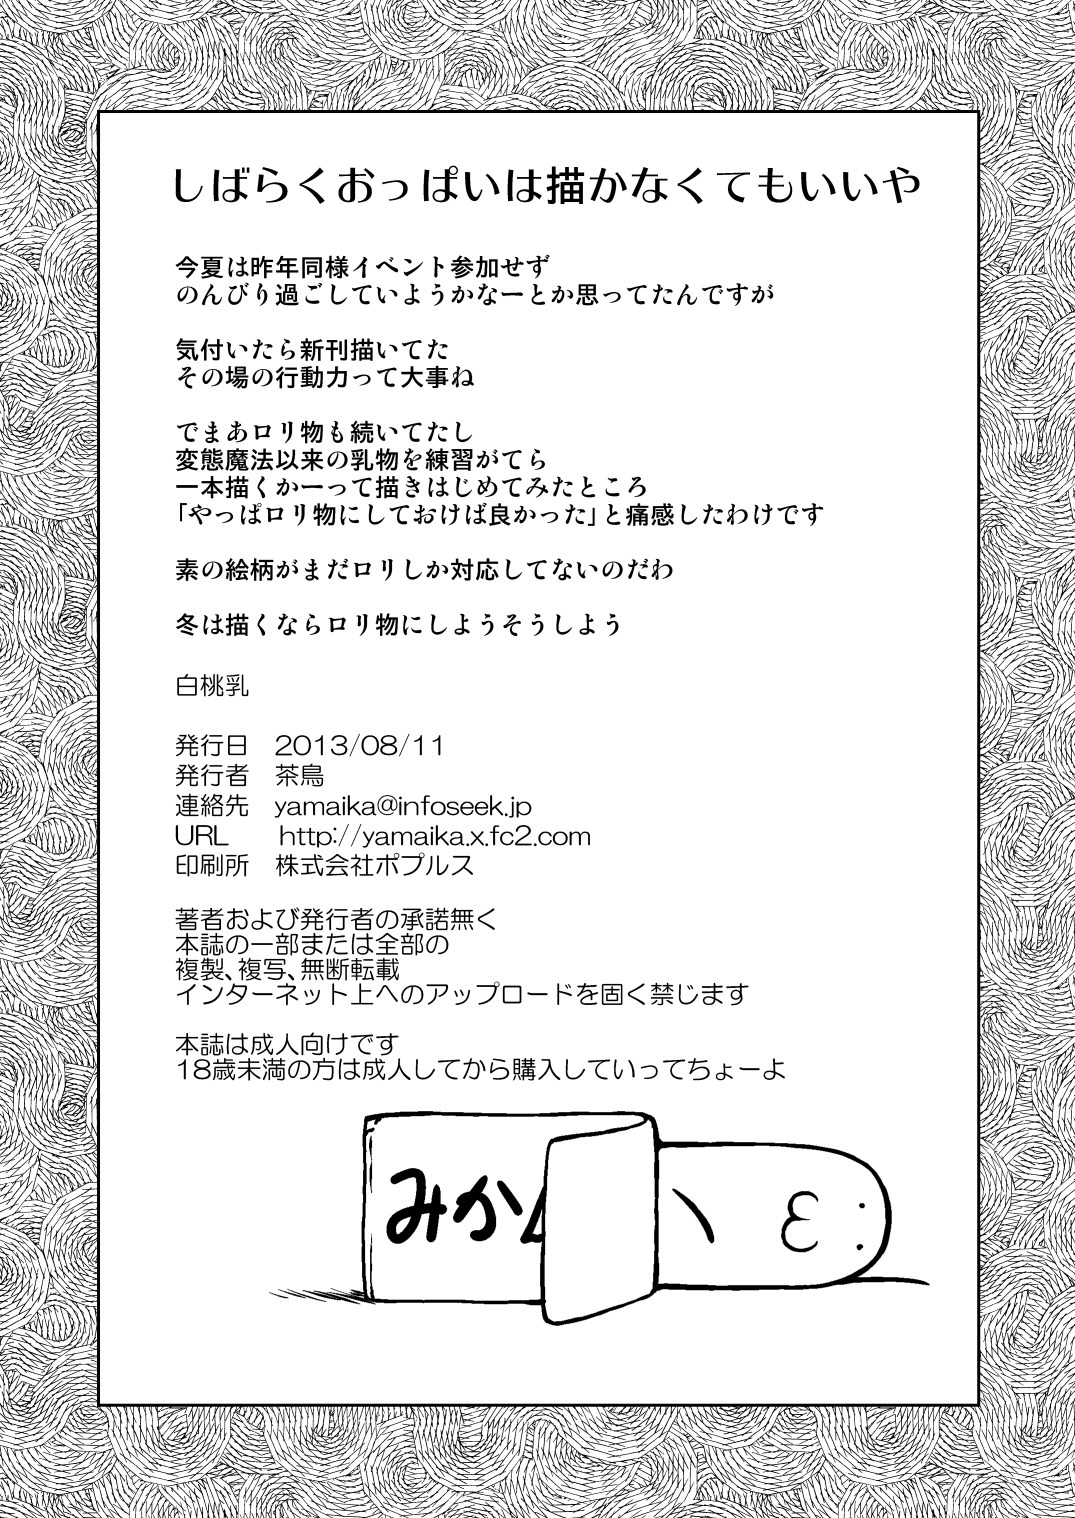 しばらくおっぱいは描かなくてもいいや
今夏は昨年同様イベント参加せず
のんびり過ごしていようかなーとか思ってたんですが
気付いたら新刊描いてた
その場の行動力って大事ね
でまあロリ物も続いてたし
変態魔法以来の乳物を練習がてら
一本描くかーって描きはじめてみたところ
「やっぱロリ物にしておけば良かった」と痛感したわけです
素の絵柄がまだロリしか対応してないのだわ
冬は描くならロリ物にしようそうしよう
白桃乳
発行日　2013/08/11
発行者　茶鳥
連絡先　yamaika@infoseek.jp
URL　http://yamaika.x.fc2.com
印刷所　株式会社ポプルス
著者および発行者の承諾無く
本誌の一部または全部の
複製、複写、無断転載
インターネット上へのアップロードを固く禁じます
本誌は成人向けです
18歳未満の方は成人してから購入していってちょーよ
みか